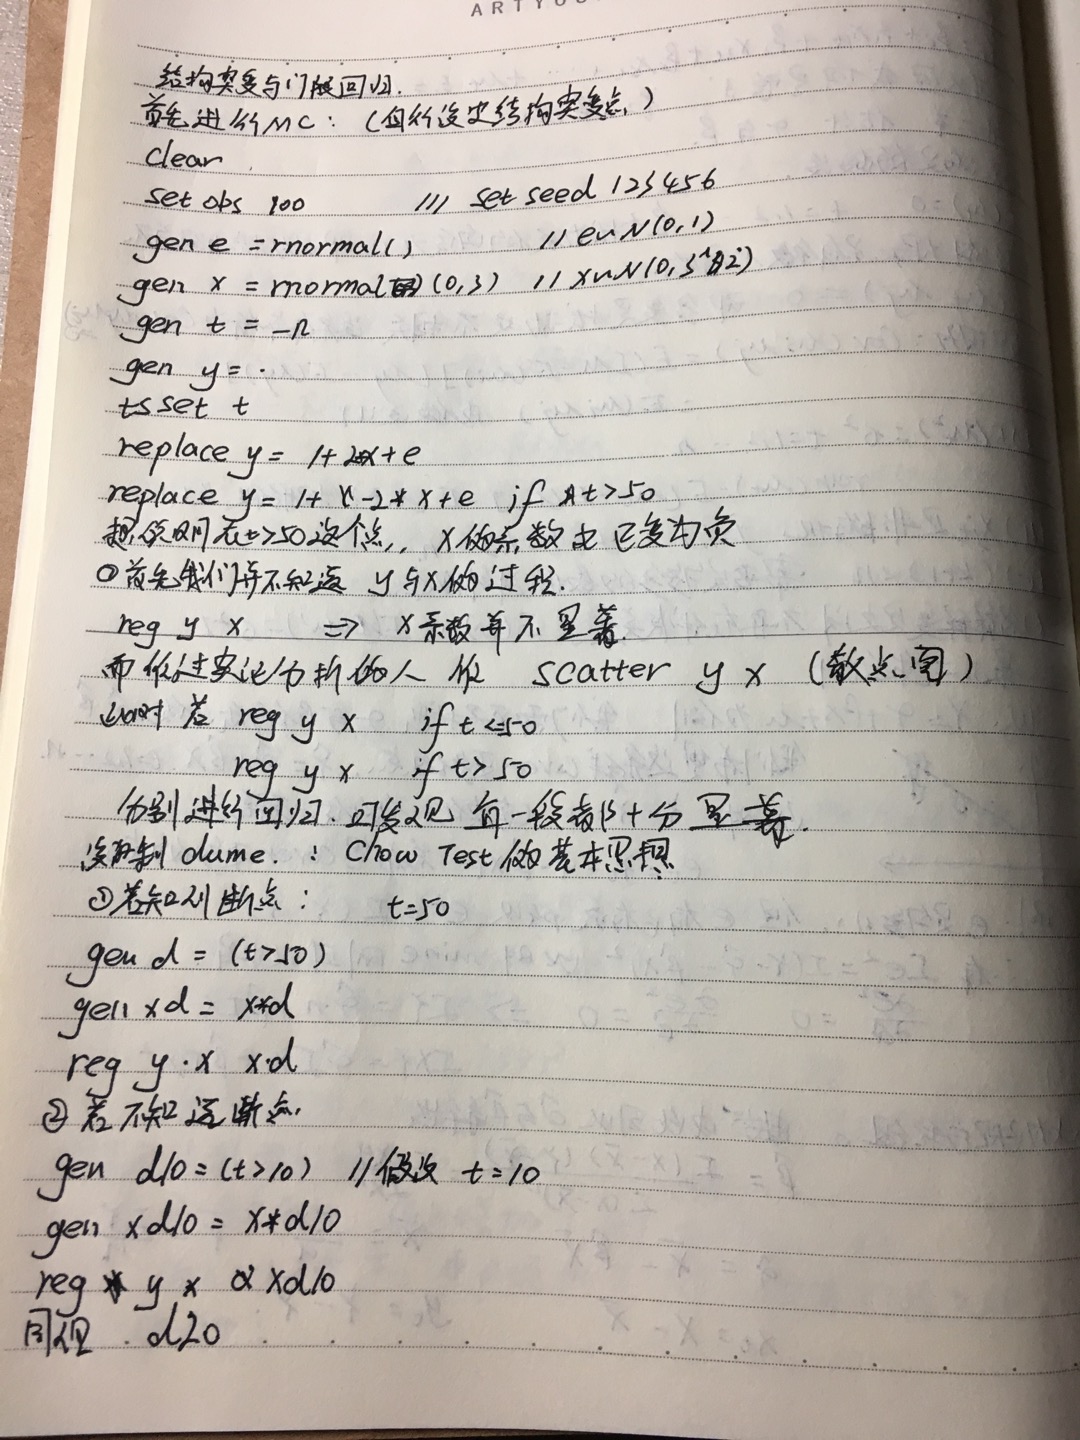 ARTYOU
结构突变与门限回归.
首先进行MC: (自行设定结构突变点)
clear
set obs 100 /// set seed 123456
gen e =rnormal() // e~N(0,1)
gen x = rnormal(0,3) // x~N(0,3^2)
gen t = _n
gen y = .
tsset t
replace y = 1+2*x+e
replace y= 1+ x-2* x+e if t>50
在t>50这个点, x的系数由正变为负
首先我们并不知道 y与x的过程.
reg y x ⇒ x系数并不显著.
而做过实证分析的人 做 scatter y x (散点图)
此时 若 reg y x if t<=50
reg y x if t>50
分别进行回归. 可发现 每一段都十分显著.
: Chow Test的基本思想
①若知道断点: t=50
gen d = (t>50)
gen xd = x*d
reg y x x·d
② 若不知道断点.
gen d10=(t>10) //假设 t=10
gen xd10 = x*d10
reg y x xd10
同理 . d20